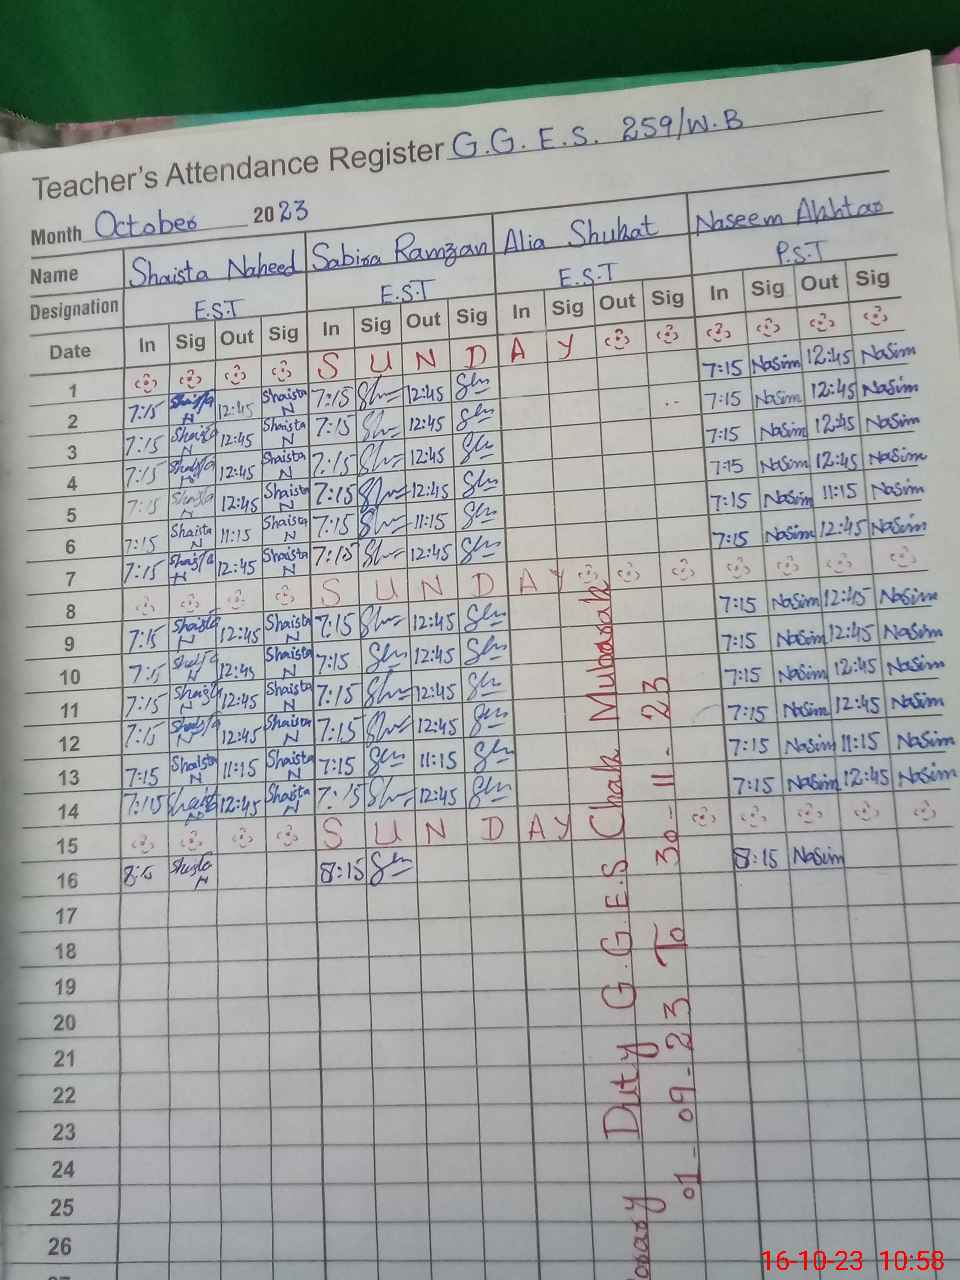 Teacher's Attendance Register G.G.E.S. 259/W.B
Month October 2023
Name Shaista Naheed Sabira Ramzan Alia Shukat Naseem Akhtar
Designation E.S.T E.S.T E.S.T P.S.T
Date In Sig Out Sig In Sig Out Sig In Sig Out Sig In Sig Out Sig
1 S U N D A Y
2 7:15 Shaista N 12:45 Shaista N 7:15 12:45 7:15 Nasim 12:45 Nasim
3 7:15 Shaista N 12:45 Shaista N 7:15 12:45 7:15 Nasim 12:45 Nasim
4 7:15 Shaista N 12:45 Shaista N 7:15 12:45 7:15 Nasim 12:45 Nasim
5 7:15 Shaista N 12:45 Shaista N 7:15 12:45 7:15 Nasim 12:45 Nasim
6 7:15 Shaista N 11:15 Shaista N 7:15 11:15 7:15 Nasim 11:15 Nasim
7 7:15 Shaista N 12:45 Shaista N 7:15 12:45 7:15 Nasim 12:45 Nasim
8 S U N D A Y
9 7:15 Shaista N 12:45 Shaista N 7:15 12:45 7:15 Nasim 12:45 Nasim
10 7:15 Shaista N 12:45 Shaista N 7:15 12:45 7:15 Nasim 12:45 Nasim
11 7:15 Shaista N 12:45 Shaista N 7:15 12:45 7:15 Nasim 12:45 Nasim
12 7:15 Shaista N 12:45 Shaista N 7:15 12:45 7:15 Nasim 12:45 Nasim
13 7:15 Shaista N 11:15 Shaista N 7:15 11:15 7:15 Nasim 11:15 Nasim
14 7:15 Shaista N 12:45 Shaista N 7:15 12:45 7:15 Nasim 12:45 Nasim
15 S U N D A Y
16 8:15 Shaista N 8:15 8:15 Nasim
17
18
19
20
21
22
23
24
25
26
Duty G.G.E.S Chak Mubarak
01-09-23 To 30-11-23
16-10-23 10:58